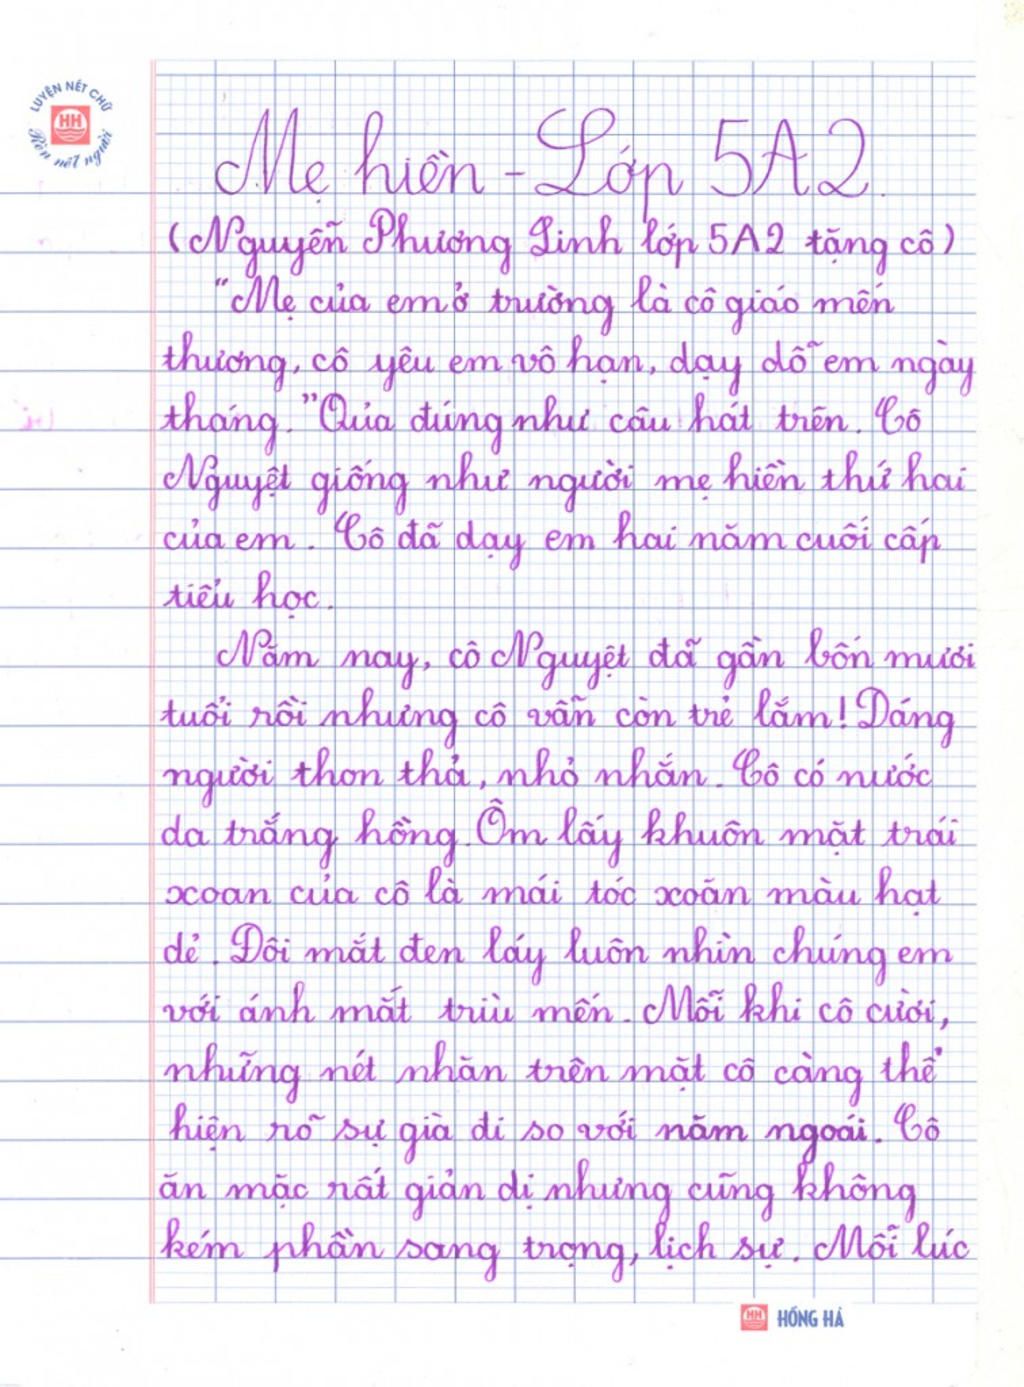 LUYỆN NÉT CHỮ
HH
Rèn nết người
Mẹ hiền - Lớp 5A2.
(Nguyễn Phương Linh lớp 5A2 tặng cô)
"Mẹ của em ở trường là cô giáo mến
thương, cô yêu em vô hạn, dạy dỗ em ngày
tháng." Qủa đúng như câu hát trên. Cô
Nguyệt giống như người mẹ hiền thứ hai
của em. Cô đã dạy em hai năm cuối cấp
tiểu học.
Năm nay, cô Nguyệt đã gần bốn mươi
tuổi rồi nhưng cô vẫn còn trẻ lắm! Dáng
người thon thả, nhỏ nhắn. Cô có nước
da trắng hồng. Ôm lấy khuôn mặt trái
xoan của cô là mái tóc xoăn màu hạt
dẻ. Đôi mắt đen láy luôn nhìn chúng em
với ánh mắt trìu mến. Mỗi khi cô cười,
những nét nhăn trên mặt cô càng thể
hiện rõ sự già đi so với năm ngoái. Cô
ăn mặc rất giản dị nhưng cũng không
kém phần sang trọng, lịch sự. Mỗi lúc
HH HỒNG HÀ